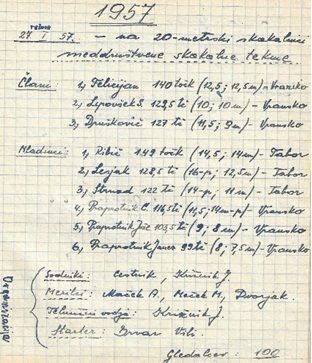 1957
27. I. 57. - na 20-metrski skakalnici
meddruštvene skakalne tekme
Člani: 1, Felicijan 140 točk (12,5; 12,5m) - Vransko
2, Lipovšek S. 129,5 tč (10; 10m) - Vransko
3, Druškovič 127 tč (11,5; 9m) - Vransko
Mladinci: 1, Ribič 149 točk (14,5; 14m) - Tabor
2, Lesjak 128,5 tč (16-p; 12,5m) - Tabor
3, Strnad 122 tč (14-p; 11m) - Tabor
4, Rapotnik C. 116,5 tč (11,5; 14m-p) - Vransko
5, Rapotnik Jže 103,5 tč (9; 8m) - Vransko
6, Rapotnik Janez 99 tč (8; 7,5m) - Vransko
Organizacija
Sodniki: Cestnik, Križnik J.
Merilci: Maček A., Maček M., Dvorjak.
Tehnični vodja: Križnik J.
Starter: Ervar Vili
Gledalcev: 100